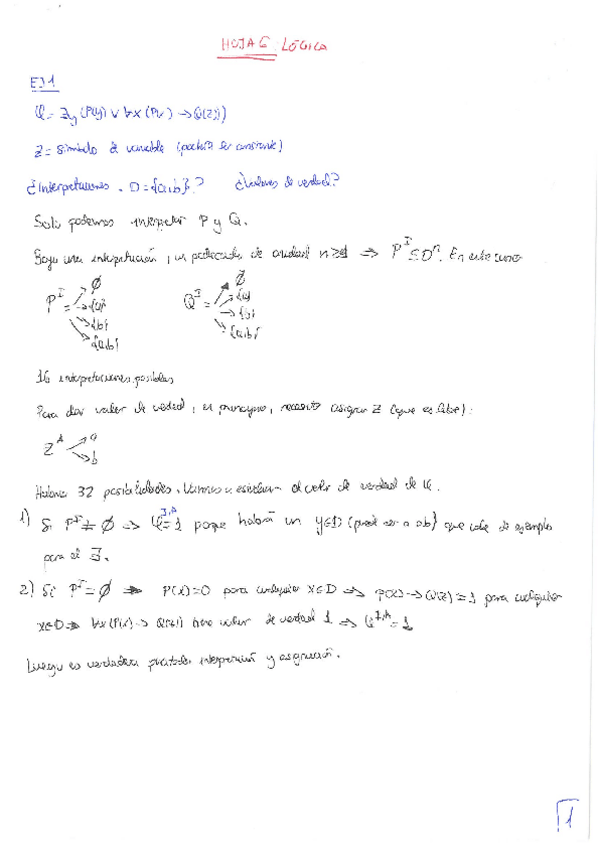 HOJA 6 LÓGICA
EJ1
φ = ∃y (P(y) ∨ ∀x (P(x) → Q(z)))
z = símbolo de variable (podría ser constante)
¿Interpretaciones, D = {a,b}? ¿Valores de verdad?
Solo podemos interpretar P y Q.
Bajo una interpretación, un predicado de aridad n≥1 ⇒ P^I ⊆ D^n. En este caso
P^I = ∅ {a} {b} {a,b} Q^I = ∅ {a} {b} {a,b}
16 interpretaciones posibles
Para dar valor de verdad, en principio, necesito asignar z (que es libre):
z^A a b
Habrá 32 posibilidades. Vamos a estudiar el valor de verdad de φ.
1) Si P^I ≠ ∅ ⇒ φ^I,A = 1 porque habrá un y∈D (puede ser a o b) que vale de ejemplo
para el ∃.
2) Si P^I = ∅ ⇒ P(x)=0 para cualquier x∈D ⇒ P(x) → Q(z) = 1 para cualquier
x∈D ⇒ ∀x (P(x) → Q(z)) tiene valor de verdad 1 ⇒ φ^I,A = 1
Luego es verdadera interpretación y asignación.
1